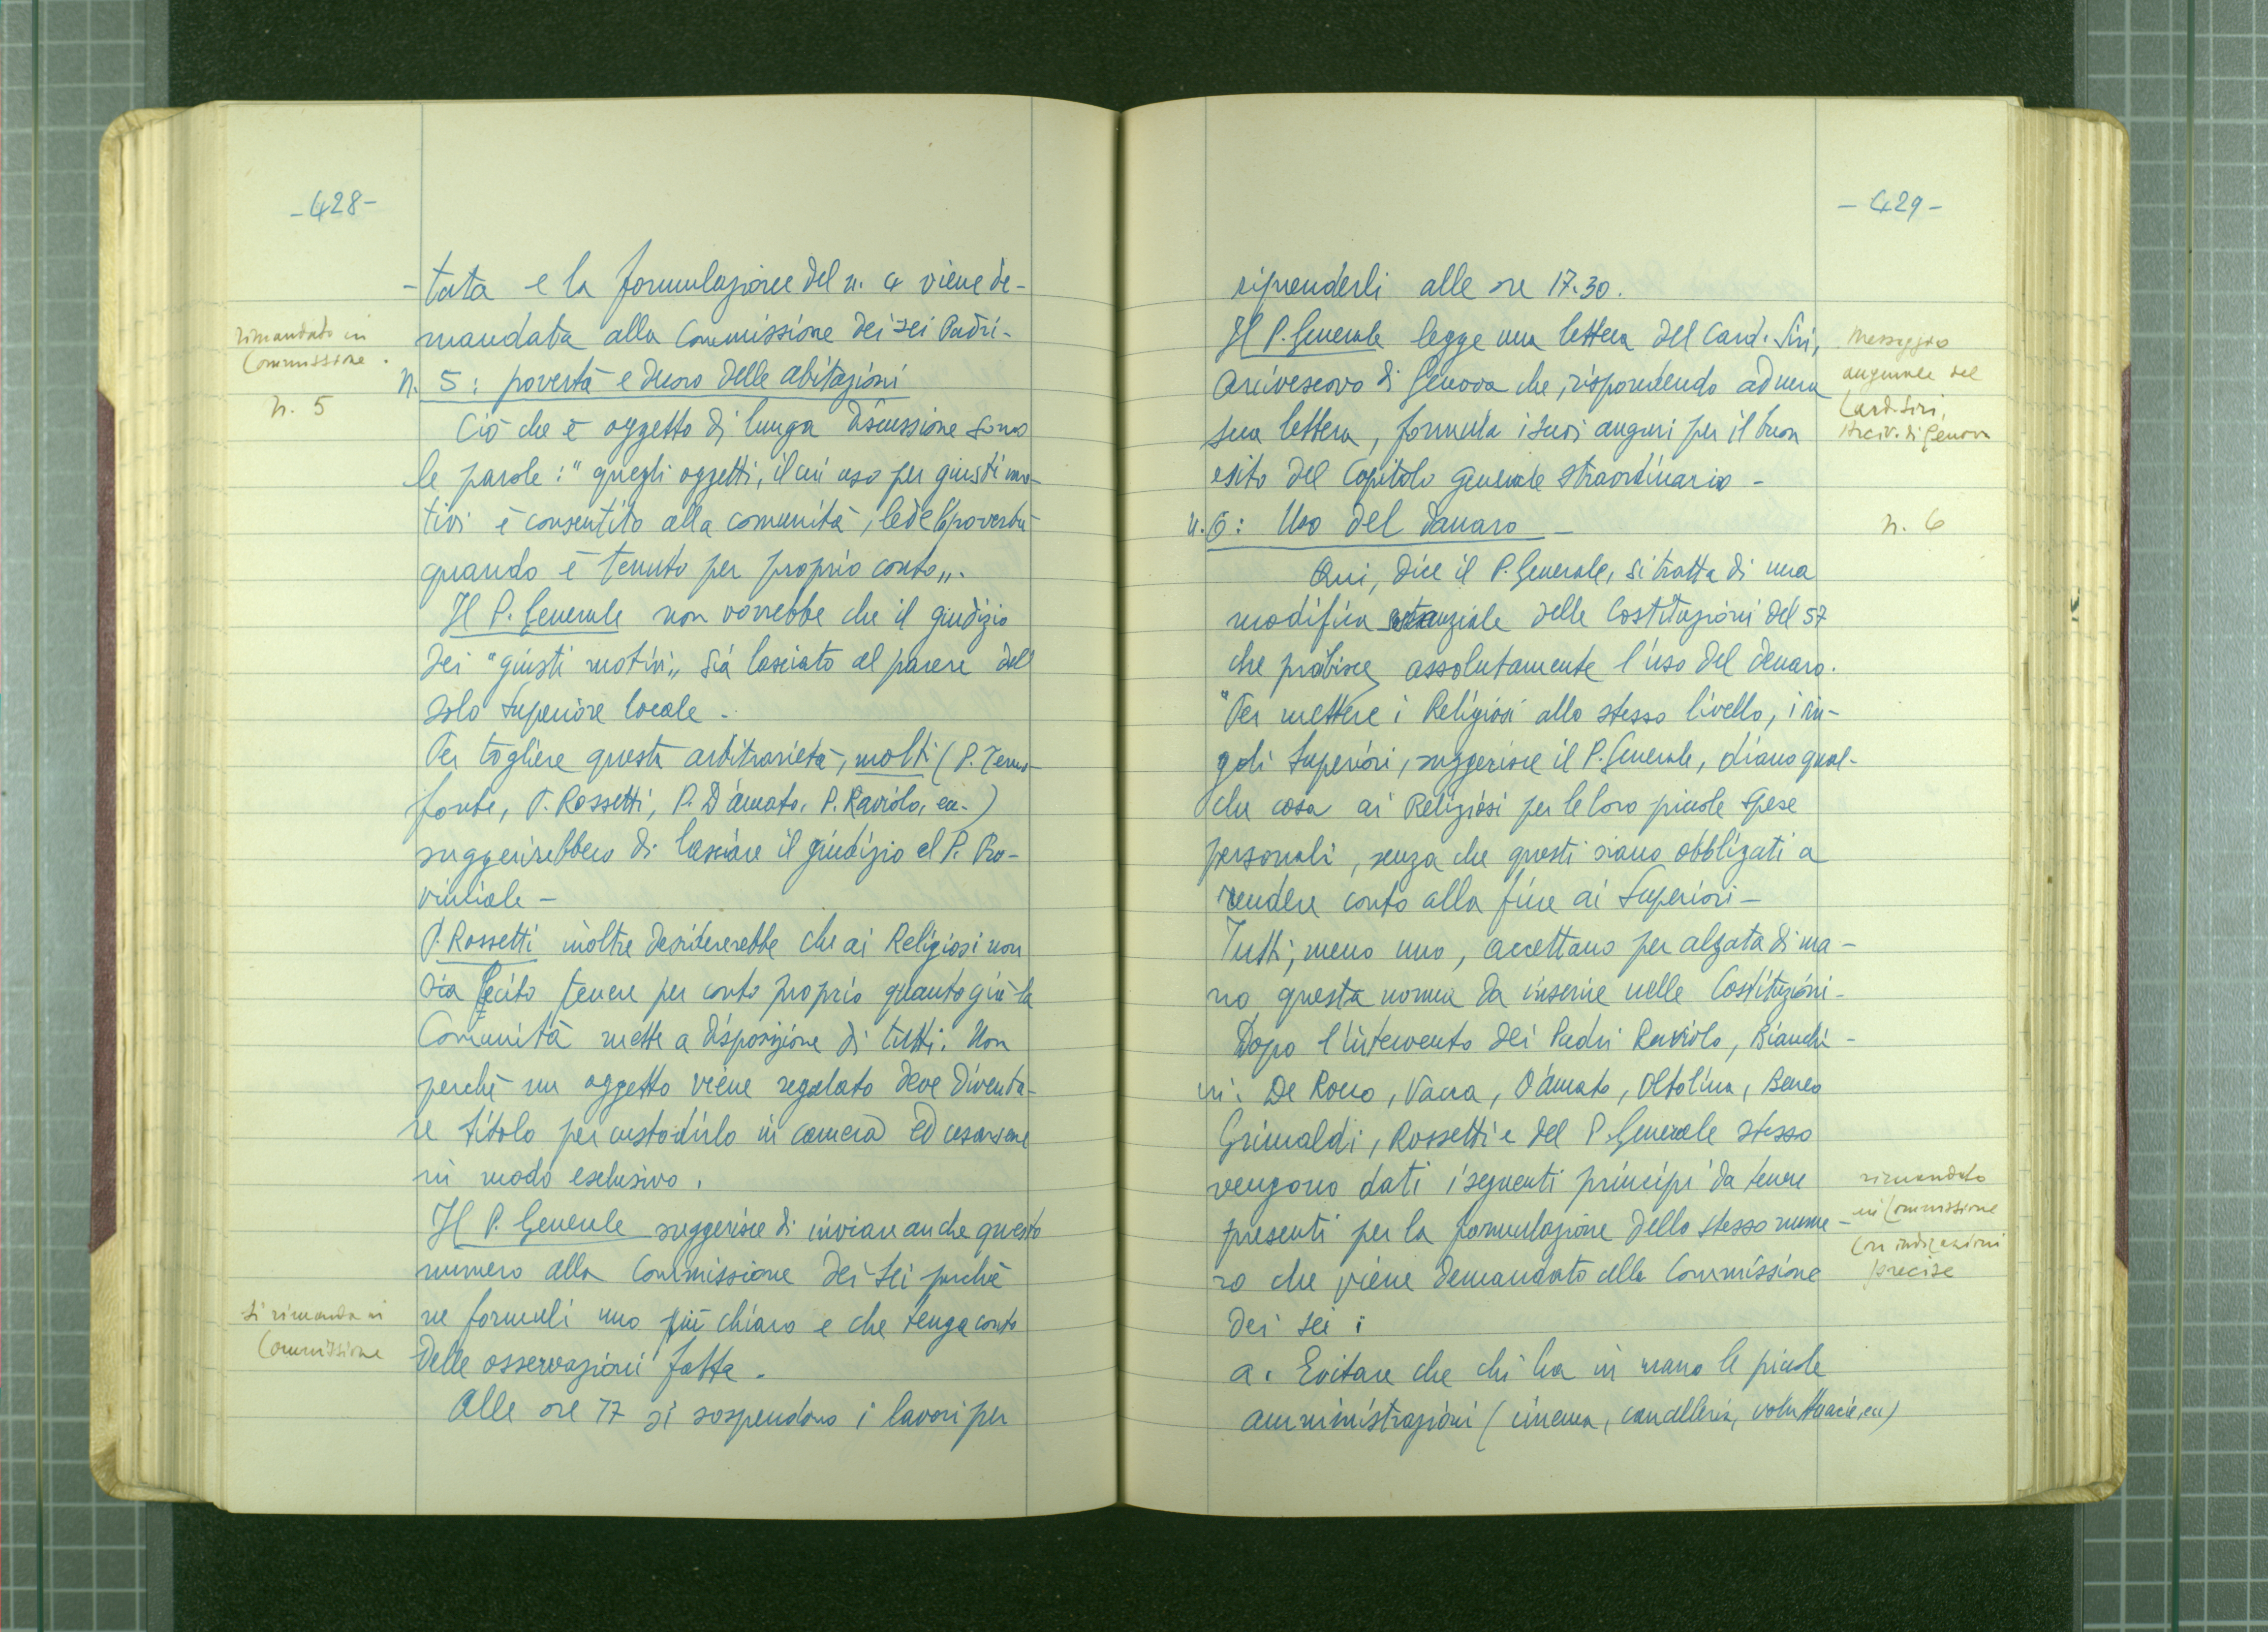 -428-
-tata e la formulazione del n. 4 viene de-
mandata alla Commissione dei sei Padri-
rimandato in
Commissione.
n. 5: povertà e decoro delle abitazioni
n. 5
Ciò che è oggetto di lunga discussione sono
le parole: "quegli oggetti, il cui uso per giusti mo-
tivi è consentito alla comunità, lede la povertà
quando è tenuto per proprio conto".
Il P. Generale non vorrebbe che il giudizio
dei "giusti motivi" sia lasciato al parere del
solo Superiore locale -
Per togliere questa arbitrarietà, molti (P.
fonte, P. Rossetti, P. D'amato, P. Raviolo, ecc.)
suggerirebbero di lasciare il giudizio al P. Pro-
vinciale -
P. Rossetti inoltre desidererebbe che ai Religiosi non
sia lecito tenere per conto proprio quanto già la
Comunità mette a disposizione di tutti. Non
perchè un oggetto viene regalato deve diventa-
re titolo per custodirlo in camera ed usarsene
in modo esclusivo.
Il P. Generale suggerisce di inviare anche questo
numero alla Commissione dei sei perchè
ne formuli uno più chiaro e che tenga conto
delle osservazioni fatte.
Si rimanda in
Commissione
Alle ore 17 si sospendono i lavori per
-429-
riprenderli alle ore 17.30.
Il P. Generale legge una lettera del Card. Siri,
Arcivescovo di Genova che, rispondendo ad una
sua lettera, formula i suoi auguri per il buon
esito del Capitolo generale straordinario -
Messaggio
augurale del
Card. Siri,
Arciv. di Genova
n. 6: Uso del danaro -
n. 6
Qui, dice il P. Generale, si tratta di una
modifica sostanziale delle Costituzioni del 57
che proibisce assolutamente l'uso del denaro.
"Per mettere i Religiosi allo stesso livello, i sin-
goli Superiori, suggerisce il P. Generale, diano qual-
che cosa ai Religiosi per le loro piccole spese
personali, senza che questi siano obbligati a
rendere conto alla fine ai Superiori -
Tutti, meno uno, accettano per alzata di ma-
no questa norma da inserire nelle Costituzioni-
Dopo l'intervento dei Padri Raviolo, Bianchi-
ni. De Rocco, Vacca, D'amato, Oltolina, Beneo
Grimaldi, Rossetti e del P. Generale stesso
vengono dati i seguenti principi da tenere
presenti per la formulazione dello stesso nume-
ro che viene demandato alla Commissione
dei sei:
rimandato
in Commissione
con indicazioni
precise
a. Evitare che chi ha in mano le piccole
amministrazioni (cinema, cancelleria, voluttuarie, ecc)